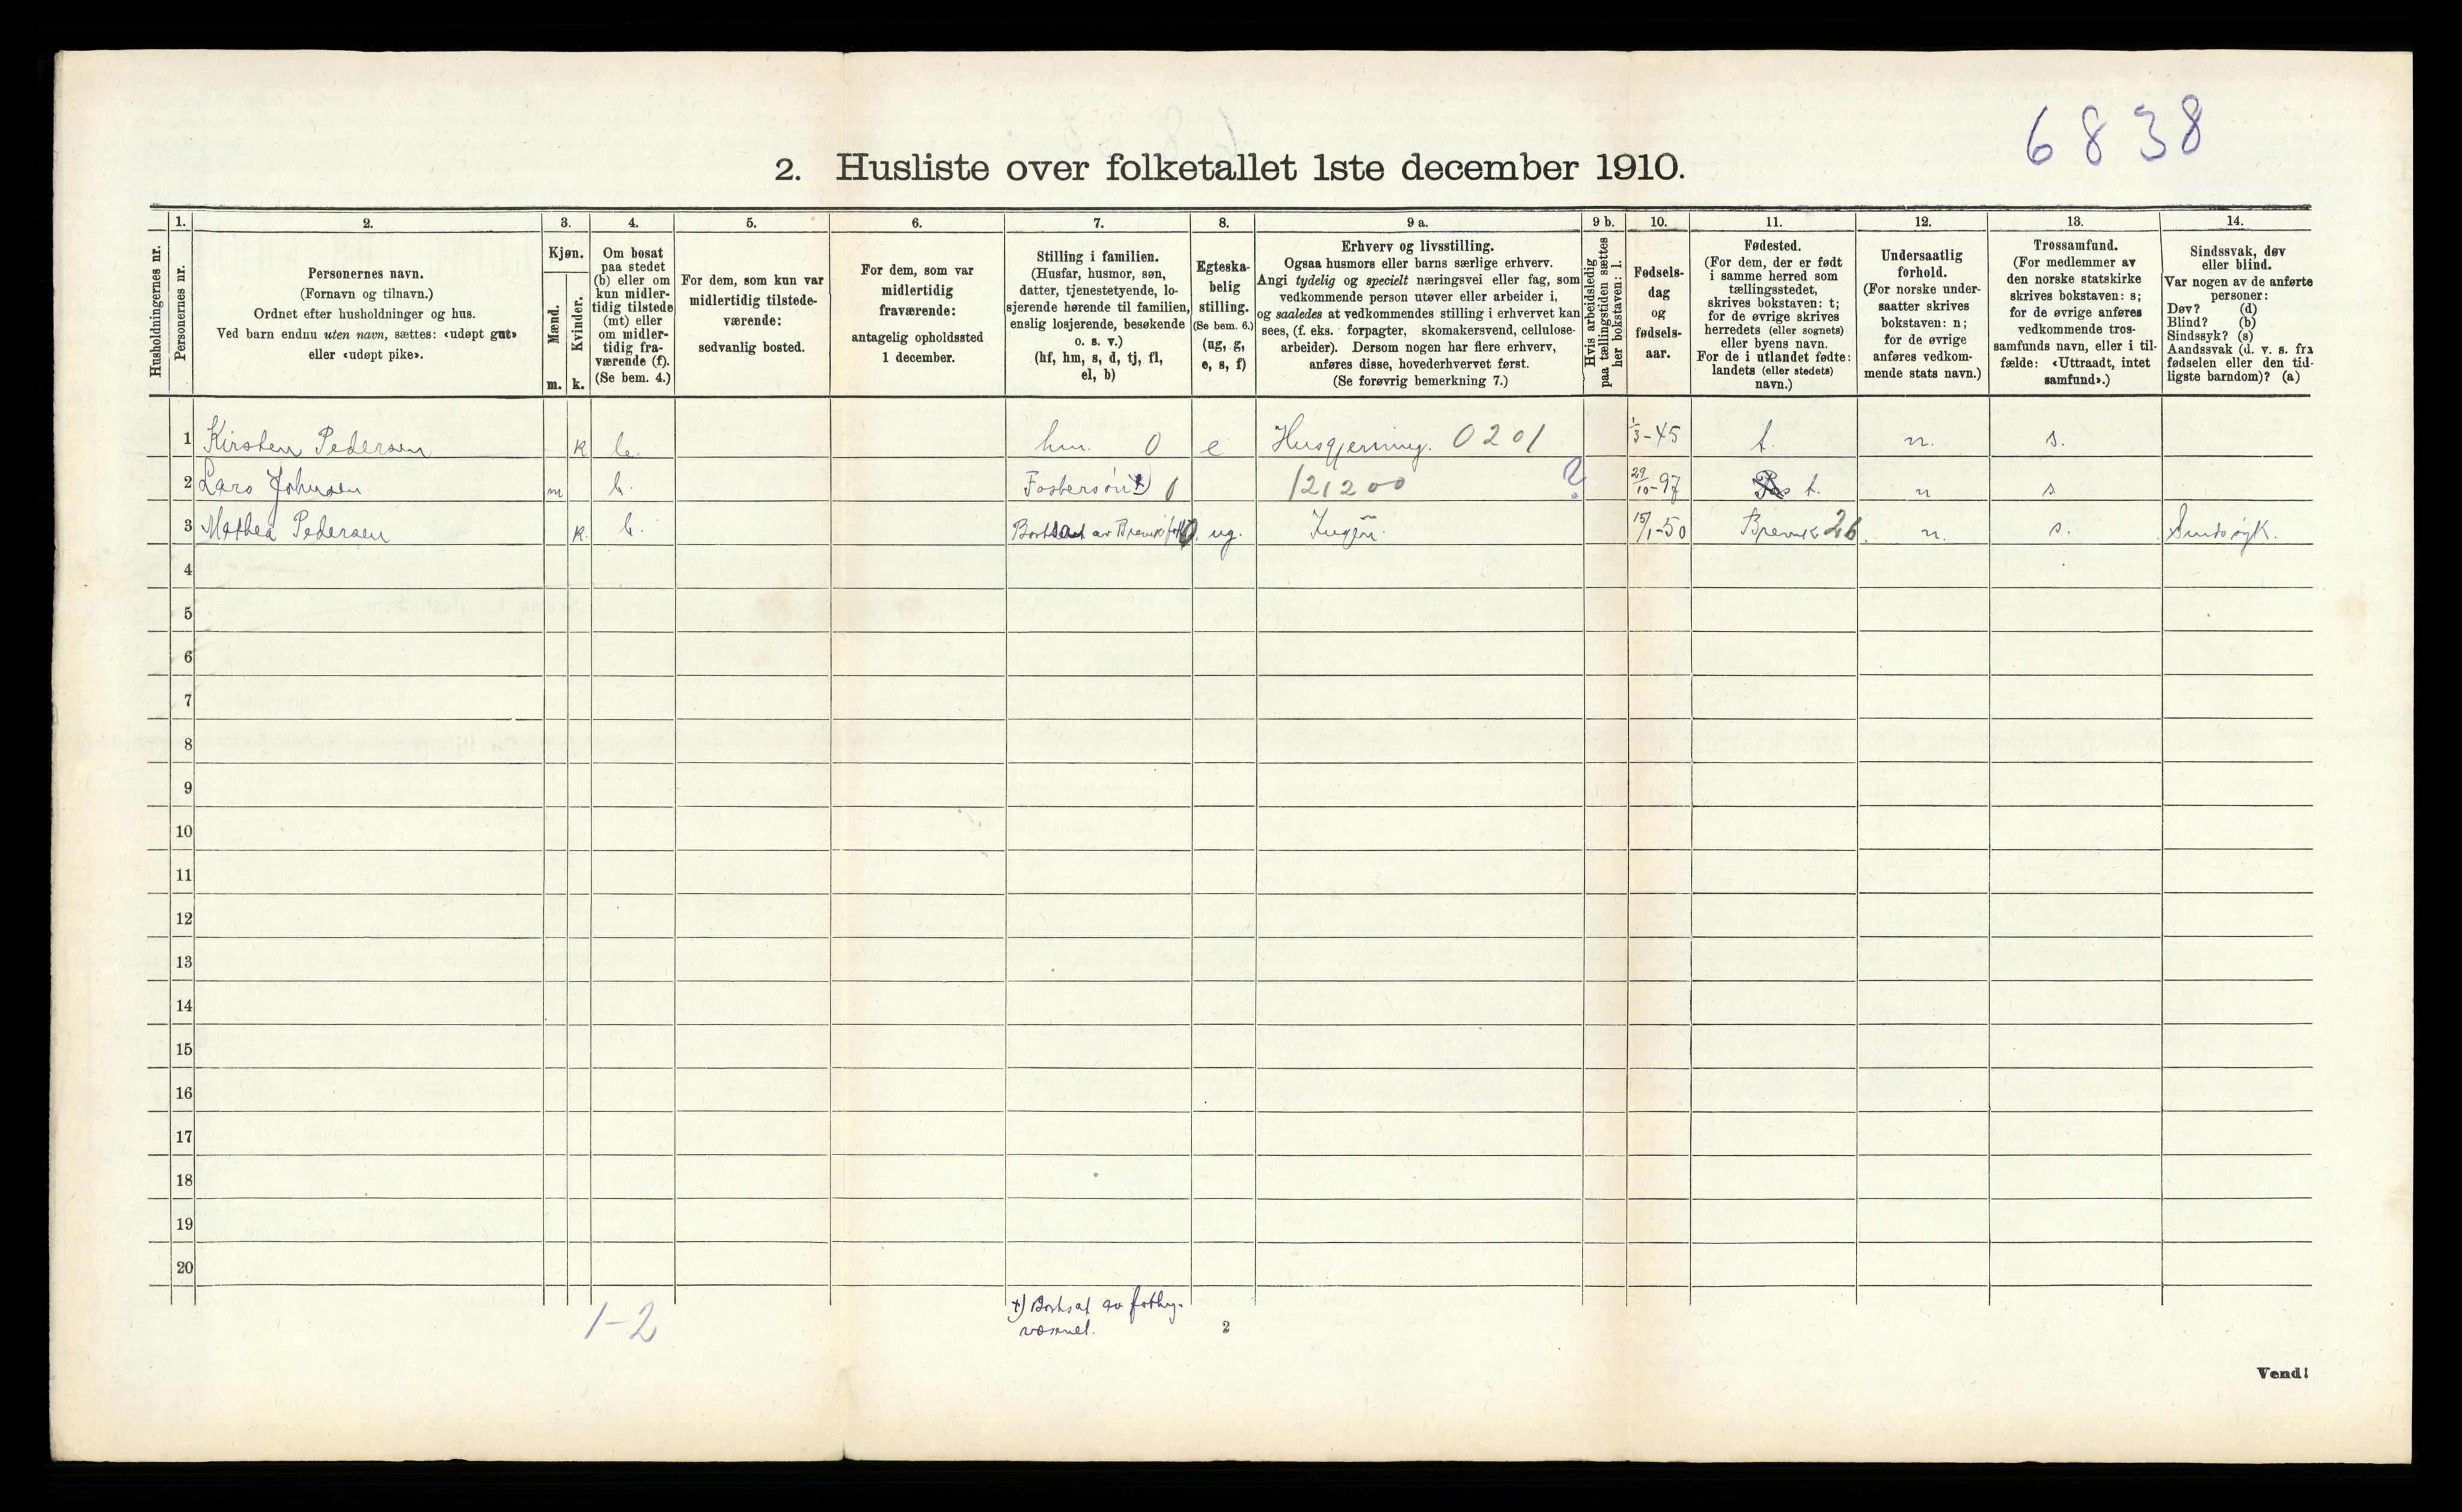 6838
2. Husliste over folketallet 1ste december 1910.
Husholdningernes nr.
1.
Personernes nr.
2.
Personernes navn.
(Fornavn og tilnavn.)
Ordnet efter husholdninger og hus.
Ved barn endnu uten navn, sættes: «udøpt gut»
eller «udøpt pike».
3.
Kjøn.
Mænd.
m.
Kvinder.
k.
4.
Om bosat
paa stedet
(b) eller om
kun midler-
tidig tilstede
(mt) eller
om midler-
tidig fra-
værende (f).
(Se bem. 4.)
5.
For dem, som kun var
midlertidig tilstede-
værende:
sedvanlig bosted.
6.
For dem, som var
midlertidig
fraværende:
antagelig opholdssted
1 december.
7.
Stilling i familien.
(Husfar, husmor, søn,
datter, tjenestetyende, lo-
sjerende hørende til familien,
enslig losjerende, besøkende
o. s. v.)
(hf, hm, s, d, tj, fl,
el, b)
8.
Egteska-
belig
stilling.
(Se bem. 6.)
(ug, g,
e, s, f)
9 a.
Erhverv og livsstilling.
Ogsaa husmors eller barns særlige erhverv.
Angi tydelig og specielt næringsvei eller fag, som
vedkommende person utøver eller arbeider i,
og saaledes at vedkommendes stilling i erhvervet kan
sees, (f. eks. forpagter, skomakersvend, cellulose-
arbeider). Dersom nogen har flere erhverv,
anføres disse, hovederhvervet først.
(Se forøvrig bemerkning 7.)
9 b.
Hvis arbeidsledig
paa tællingstiden sættes
her bokstaven: l.
10.
Fødsels-
dag
og
fødsels-
aar.
11.
Fødested.
(For dem, der er født
i samme herred som
tællingsstedet,
skrives bokstaven: t;
for de øvrige skrives
herredets (eller sognets)
eller byens navn.
For de i utlandet fødte:
landets (eller stedets)
navn.)
12.
Undersaatlig
forhold.
(For norske under-
saatter skrives
bokstaven: n;
for de øvrige
anføres vedkom-
mende stats navn.)
13.
Trossamfund.
(For medlemmer av
den norske statskirke
skrives bokstaven: s;
for de øvrige anføres
vedkommende tros-
samfunds navn, eller i til-
fælde: «Uttraadt, intet
samfund».)
14.
Sindssvak, døv
eller blind.
Var nogen av de anførte
personer:
Døv? (d)
Blind? (b)
Sindssyk? (s)
Aandssvak (d. v. s. fra
fødselen eller den tid-
ligste barndom)? (a)
1 Kirsten Pedersen k b. hm. 0 e Husgjerning. 0201 1/3-45 t. n. s.
2 Lars Johnsen m b. Fostersøn x) 0 121200 ? 29/10-97 t. n s
3 Mathea Pedersen k. b. Bortsat av Brevik 0 ug. Ingen. 15/1-50 Brevik 26 n. s. Sindssyk.
4
5
6
7
8
9
10
11
12
13
14
15
16
17
18
19
20
1-2
x) Bortsat av fattig-
væsenet.
2
Vend!